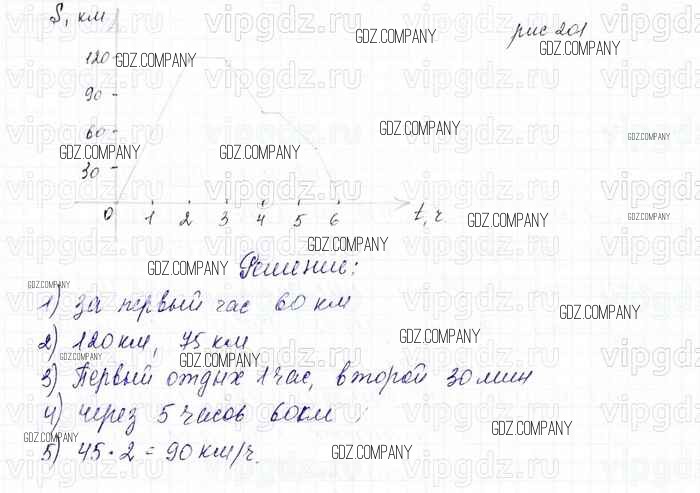 S, км
рис 201
120
90
60
30
0 1 2 3 4 5 6 t, ч
Решение:
1) за первый час 60 км
2) 120 км, 75 км
3) Первый отдых 1 час, второй 30 мин
4) через 5 часов 60 км
5) 45 · 2 = 90 км/ч.
vipgdz.ru
GDZ.COMPANY